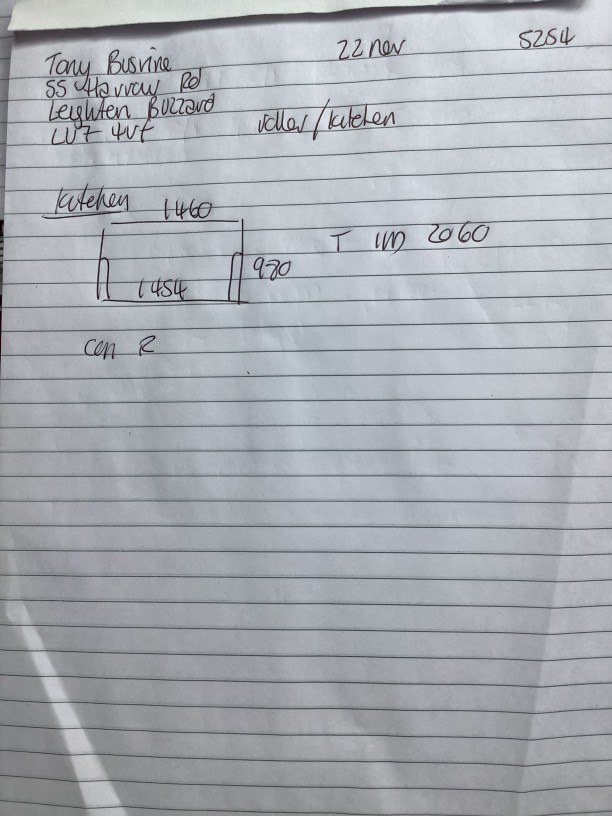 Tony Busvine 22 nov 5254
55 Harrow Rd
Leighten Buzzard
LU7 4UF roller/kitchen
kitchen
1460
T IM 2060
980
1454
Con R